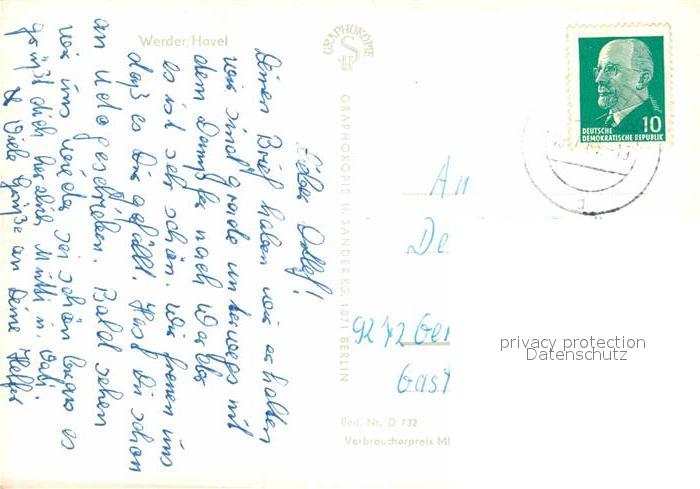 Werder/Havel
GRAPHOKOPIE
Lieber Detlef!
Deinen Brief haben wir erhalten
wir sind gerade unterwegs mit
dem Dampfer nach Werder
es ist sehr schön. Wir freuen uns
daß es Dir gefällt. Hast Du schon
an Udo geschrieben. Bald sehen
wir uns wieder sei schön brav es
grüßt dich herzlich Mutti u. Vati
Viele Grüße an Deine Helfer
GRAPHOKOPIE H. SANDER KG, 1071 BERLIN
DEUTSCHE
DEMOKRATISCHE REPUBLIK
10
An
De
9272 Ger
Gast
privacy protection
Datenschutz
Best. Nr. D 732
Verbraucherpreis M